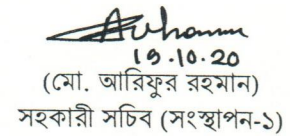 19.10.20
(মো. আরিফুর রহমান)
সহকারী সচিব (সংস্থাপন-১)